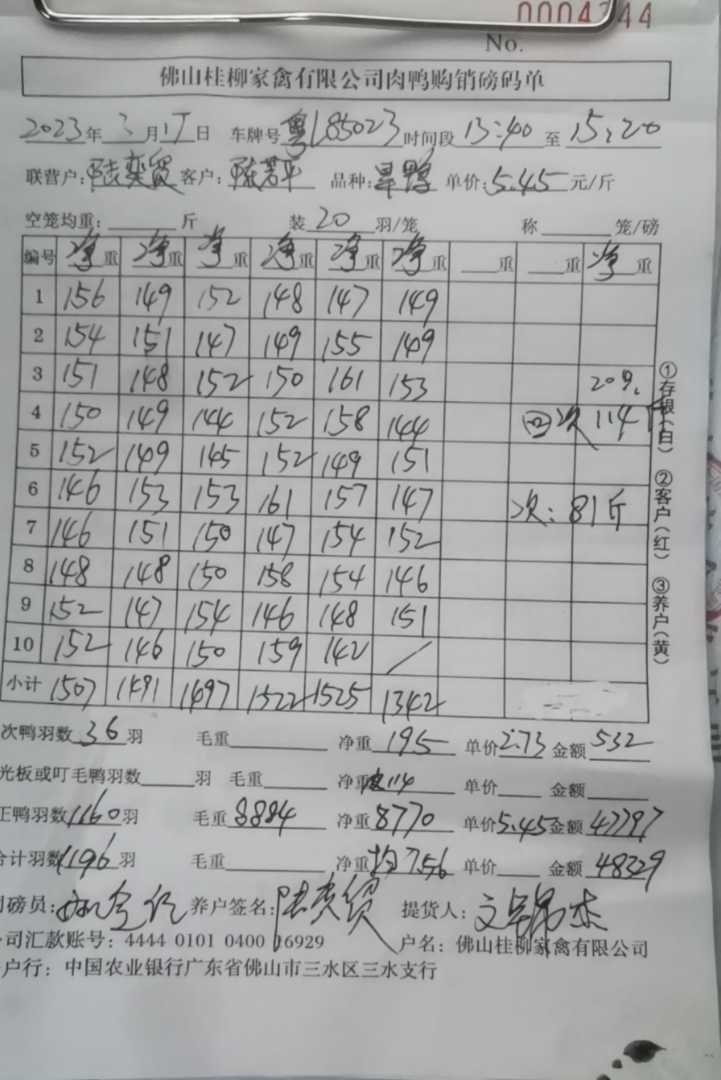 0004744
No.
佛山桂柳家禽有限公司肉鸭购销磅码单
2023年3月17日 车牌号 粤L85023 时间段 13:40 至 15:20
联营户: 陆奕贸 客户: 陈若平 品种: 旱鸭 单价: 5.45 元/斤
空笼均重: 斤 装 20 羽/笼 称 笼/磅
编号 净重 净重 净重 净重 净重 净重 重 重 净重
1 156 149 152 148 147 149
2 154 151 147 149 155 149
3 151 148 152 150 161 153 209,
4 150 149 144 152 158 144 回次 114斤
5 152 149 145 152 149 151
6 146 153 153 161 157 147 次: 81斤
7 146 151 150 147 154 152
8 148 148 150 158 154 146
9 152 147 154 146 148 151
10 152 146 150 159 142 /
小计 1507 1491 1497 1522 1525 1342
①存根(白) ②客户(红) ③养户(黄)
次鸭羽数 36 羽 毛重 净重 195 单价 2.73 金额 532
光板或叮毛鸭羽数 羽 毛重 净重 114 单价 金额
正鸭羽数 1160 羽 毛重 8884 净重 8770 单价 5.45 金额 47797
合计羽数 1196 羽 毛重 净重 均7.56 单价 金额 48329
司磅员: 养户签名: 陆奕贸 提货人:
公司汇款账号: 4444 0101 0400 16929 户名: 佛山桂柳家禽有限公司
户行: 中国农业银行广东省佛山市三水区三水支行